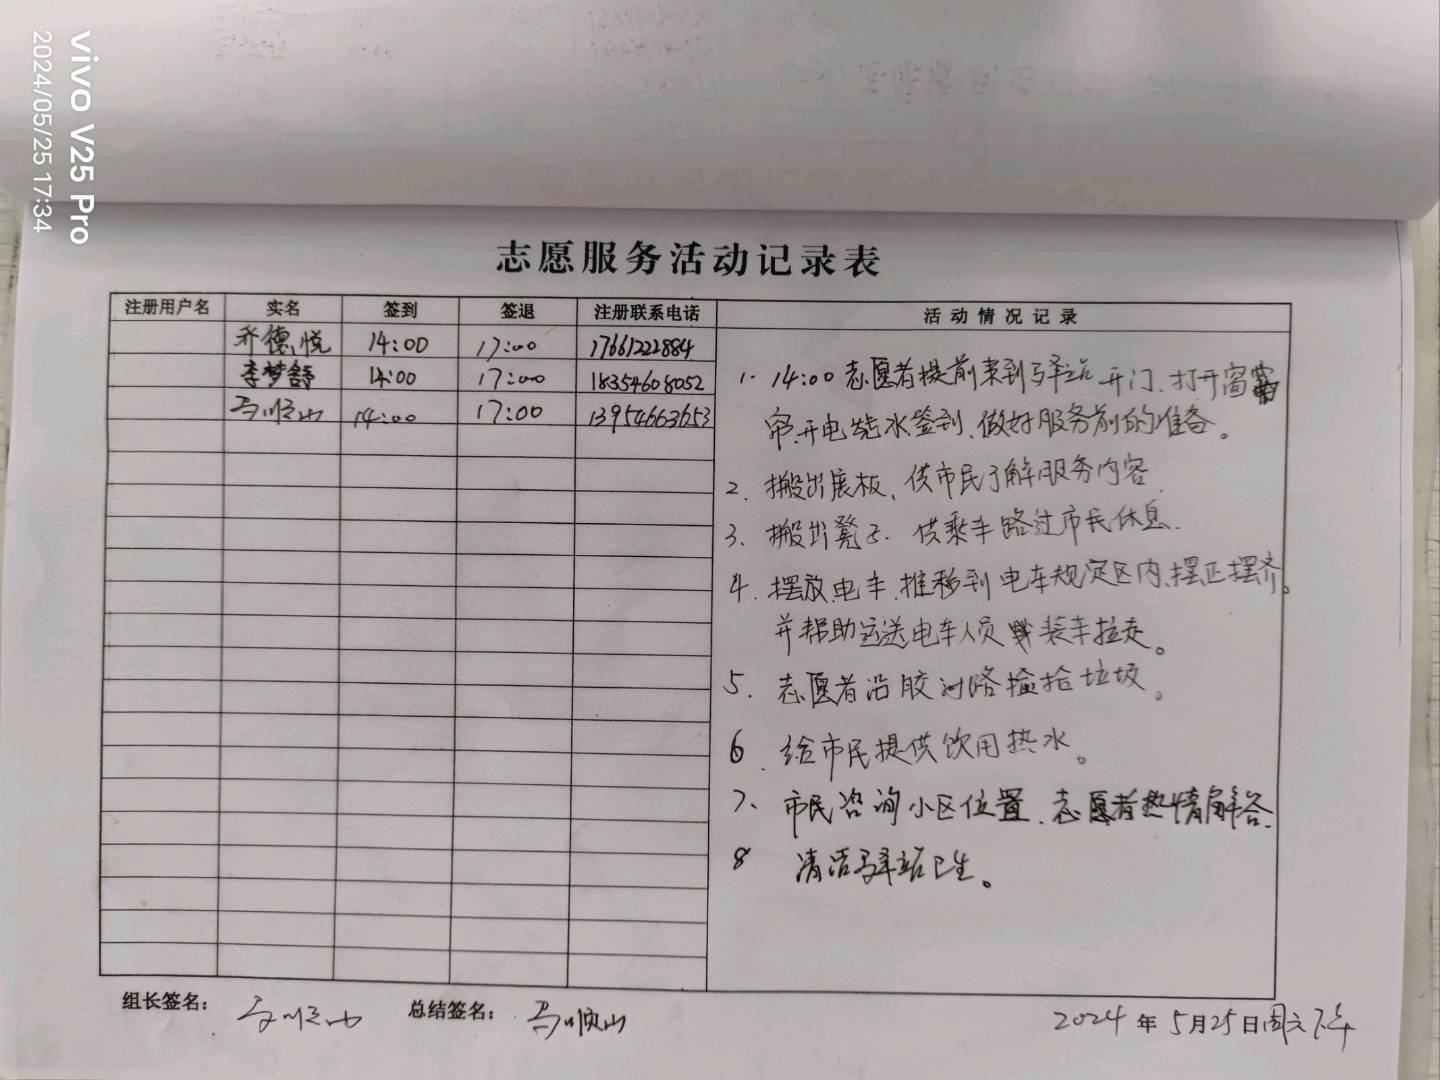 vivo V25 Pro
2024/05/25 17:34
志愿服务活动记录表
注册用户名 实名 签到 签退 注册联系电话 活动情况记录
乔德悦 14:00 17:00 17661222884
李梦舒 14:00 17:00 18354608052
马顺山 14:00 17:00 13954663653
1. 14:00志愿者提前来到驿站开门、打开窗
帘、开电烧水签到、做好服务前的准备。
2. 搬出展板、供市民了解服务内容.
3. 搬出凳子. 供乘车路过市民休息.
4. 摆放电车、推移到电车规定区内、摆正摆齐。
并帮助运送电车人员装车拉走。
5. 志愿者沿胶州路捡拾垃圾。
6. 给市民提供饮用热水。
7、市民咨询小区位置、志愿者热情解答.
8 清洁驿站卫生。
组长签名: 马顺山 总结签名: 马顺山
2024年5月25日周六下午